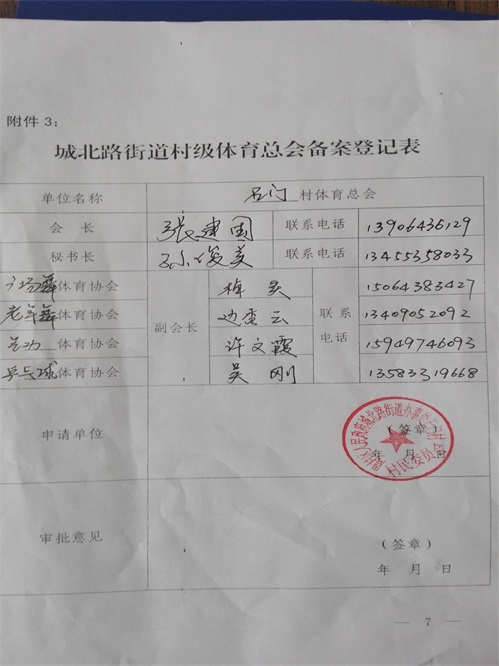 附件 3：
城北路街道村级体育总会备案登记表
单位名称 石门 村体育总会
会 长 张建国 联系电话 13906436129
秘书长 孙俊美 联系电话 13455358033
广场舞体育协会 副会长 灵 联系电话 15064383427
老年舞体育协会 边香云 13409052092
气功体育协会 许文霞 15949746093
乒乓球体育协会 吴刚 13583319668
申请单位 （签章）
年 月 日
村民委员会
审批意见 （签章）
年 月 日
— 7